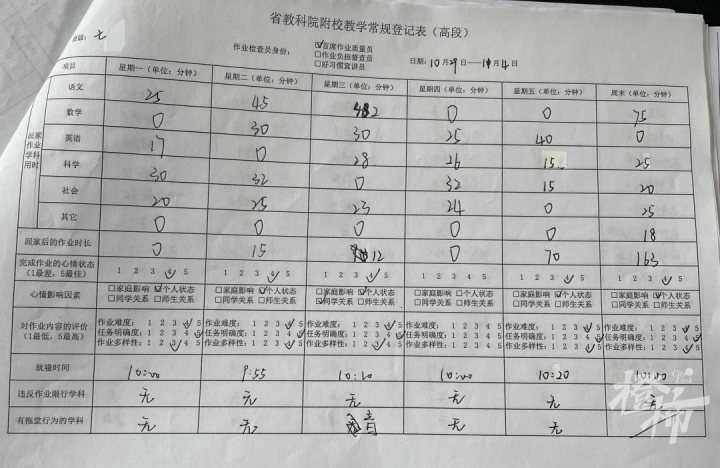 省教科院附校教学常规登记表（高段）
班级：七
作业检查员身份： ☑首席作业质量员
□作业负担督查员
□好习惯宣讲员
日期：10月29日——11月4日
项目 星期一（单位：分钟） 星期二（单位：分钟） 星期三（单位：分钟） 星期四（单位：分钟） 星期五（单位：分钟） 周末（单位：分钟）
回家作业学科用时
语文 25 45 0 0 75
数学 0 30 30 25 40 0
英语 17 0 28 26 15 25
科学 30 32 0 32 15 20
社会 20 25 23 24 0 25
其它 0 0 0 0 0 18
回家后的作业时长 0 15 12 0 70 163
完成作业的心情状态（1最差，5最佳） 1 2 3 4 5 1 2 3 4 5 1 2 3 4 5 1 2 3 4 5 1 2 3 4 5 1 2 3 4 5
心情影响因素 □家庭影响 ☑个人状态 □家庭影响 ☑个人状态 □家庭影响 ☑个人状态 □家庭影响 □个人状态 □家庭影响 ☑个人状态 □家庭影响 ☑个人状态
□同学关系 □师生关系 □同学关系 □师生关系 ☑同学关系 □师生关系 □同学关系 □师生关系 □同学关系 □师生关系 □同学关系 □师生关系
对作业内容的评价（1最低，5最高）
作业难度： 1 2 3 4 5 作业难度： 1 2 3 4 5 作业难度： 1 2 3 4 5 作业难度： 1 2 3 4 5 作业难度： 1 2 3 4 5 作业难度： 1 2 3 4 5
任务明确度： 1 2 3 4 5 任务明确度： 1 2 3 4 5 任务明确度： 1 2 3 4 5 任务明确度： 1 2 3 4 5 任务明确度： 1 2 3 4 5 任务明确度： 1 2 3 4 5
作业多样性： 1 2 3 4 5 作业多样性： 1 2 3 4 5 作业多样性： 1 2 3 4 5 作业多样性： 1 2 3 4 5 作业多样性： 1 2 3 4 5 作业多样性： 1 2 3 4 5
就寝时间 10:00 9:55 10:10 10:00 10:20 10:00
违反作业限行学科 无 无 无 无 无 无
有拖堂行为的学科 无 无 无 无
橙柿